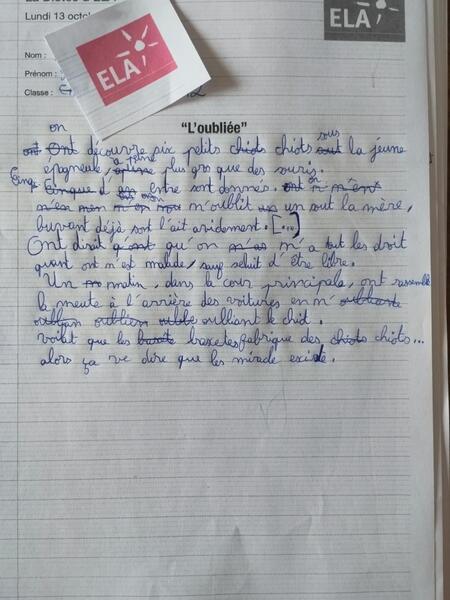 Lundi 13 octo
ELA
ELA
Nom :
Prénom :
Classe :
"L'oubliée"
on sous
ont Ont découvre six petits chiots chiots sout la jeune
épagneule, a peine plus gro que des souris.
Cinq Cinque d' entre sont donnés. ont on n m'ent
m'en m'en m'oublit un sout la mère,
buvant déjà sont l'ait avidement. [...]
Ont dirait qu'ont qu'on m'as m'a tout les droit
quant ont n'est malade, sauf seluit d'être libre.
Un m matin, dans la cour principale, ont rassemble
la meute à l'arrière des voitures en m' oubliante
oublian oublian oubli oulliant le chid.
voilat que les basets baxetes fabrique des chiots chiots...
alors ça ve dire que les mirade existe.